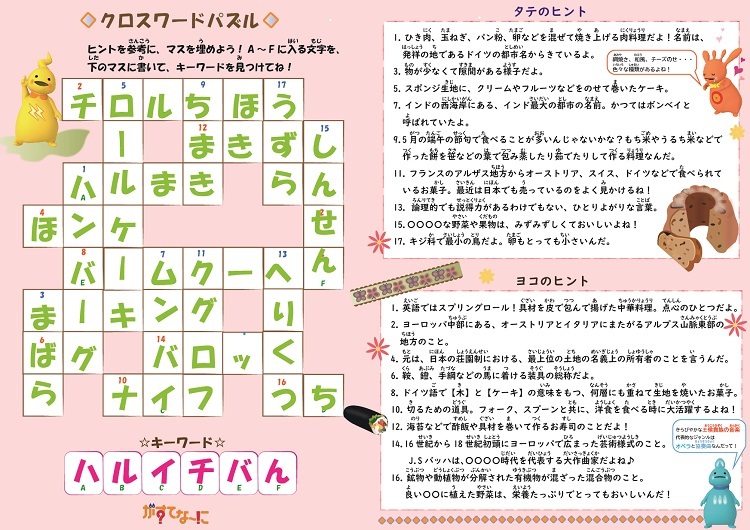 クロスワードパズル
ヒントを参考に、マスを埋めよう！A～Fに入る文字を、
下のマスに書いて、キーワードを見つけてね！
2チ 5ロ ル 9ち ほ 17う
ー 12ま き ず 15し
1ハ ル ま き ら ん
4ほ ン ケ せ
8バ ー 7ム 11ク ー 13へ ん
3ま ー キ ン グ り
6ば グ 14バ ロ ッ く
ら 10ナ イ フ 16つ ち
☆キーワード☆
ハルイチバん
A B C D E F
がすてなーに
タテのヒント
1. ひき肉、玉ねぎ、パン粉、卵などを混ぜて焼き上げる肉料理だよ！名前は、
発祥の地であるドイツの都市名からきているよ。
3. 物が少なくて隙間がある様子だよ。
5. スポンジ生地に、クリームやフルーツなどをのせて巻いたケーキ。
7. インドの西海岸にある、インド最大の都市の名前。かつてはボンベイと
呼ばれていたよ。
9. 5月の端午の節句で食べることが多おいんじゃないかな？もち米やうるち米などで
作った餅を笹などの葉で包み蒸したり茹でたりして作る料理なんだ。
11. フランスのアルザス地方からオーストリア、スイス、ドイツなどで食べられて
いるお菓子。最近は日本でも売っているのをよく見かけるね！
13. 論理的でも説得力があるわけでもない、ひとりよがりな言葉。
15. ○○○○な野菜や果物は、みずみずしくておいしいよね！
17. キジ科で最小の鳥だよ。卵もとっても小さいんだ。
網焼き、和風、チーズのせ・・・
色々な種類があるよね！
ヨコのヒント
1. 英語ではスプリングロール！具材を皮で包んで揚げた中華料理。点心のひとつだよ。
2. ヨーロッパ中部にある、オーストリアとイタリアにまたがるアルプス山脈東部の
地方のこと。
4. 元は、日本の荘園制における、最上位の土地の名義上の所有者のことを言うんだ。
6. 鞍、鐙、手綱などの馬に着ける装具の総称だよ。
8. ドイツ語で【木】と【ケーキ】の意味をもつ、何層にも重ねて生地を焼いたお菓子。
10. 切るための道具。フォーク、スプーンと共に、洋食を食べる時に大活躍するよね！
12. 海苔などで酢飯や具材を巻いて作るお寿司のことだよ！
14. 16世紀から18世紀初頭にヨーロッパで広まった芸術様式のこと。
J.S.バッハは、○○○○時代を代表する大作曲家だよね♪
16. 鉱物や動植物が分解された有機物が混ざった混合物のこと。
良い○○に植えた野菜は、栄養たっぷりでとってもおいしいんだ！
きらびやかな王侯貴族の音楽
代表的なジャンルは
オペラと協奏曲なんだって！